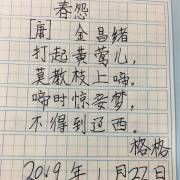 春怨
[唐] 金昌绪
打起黄莺儿，
莫教枝上啼。
啼时惊妾梦，
不得到辽西。
格格
2019年1月22日